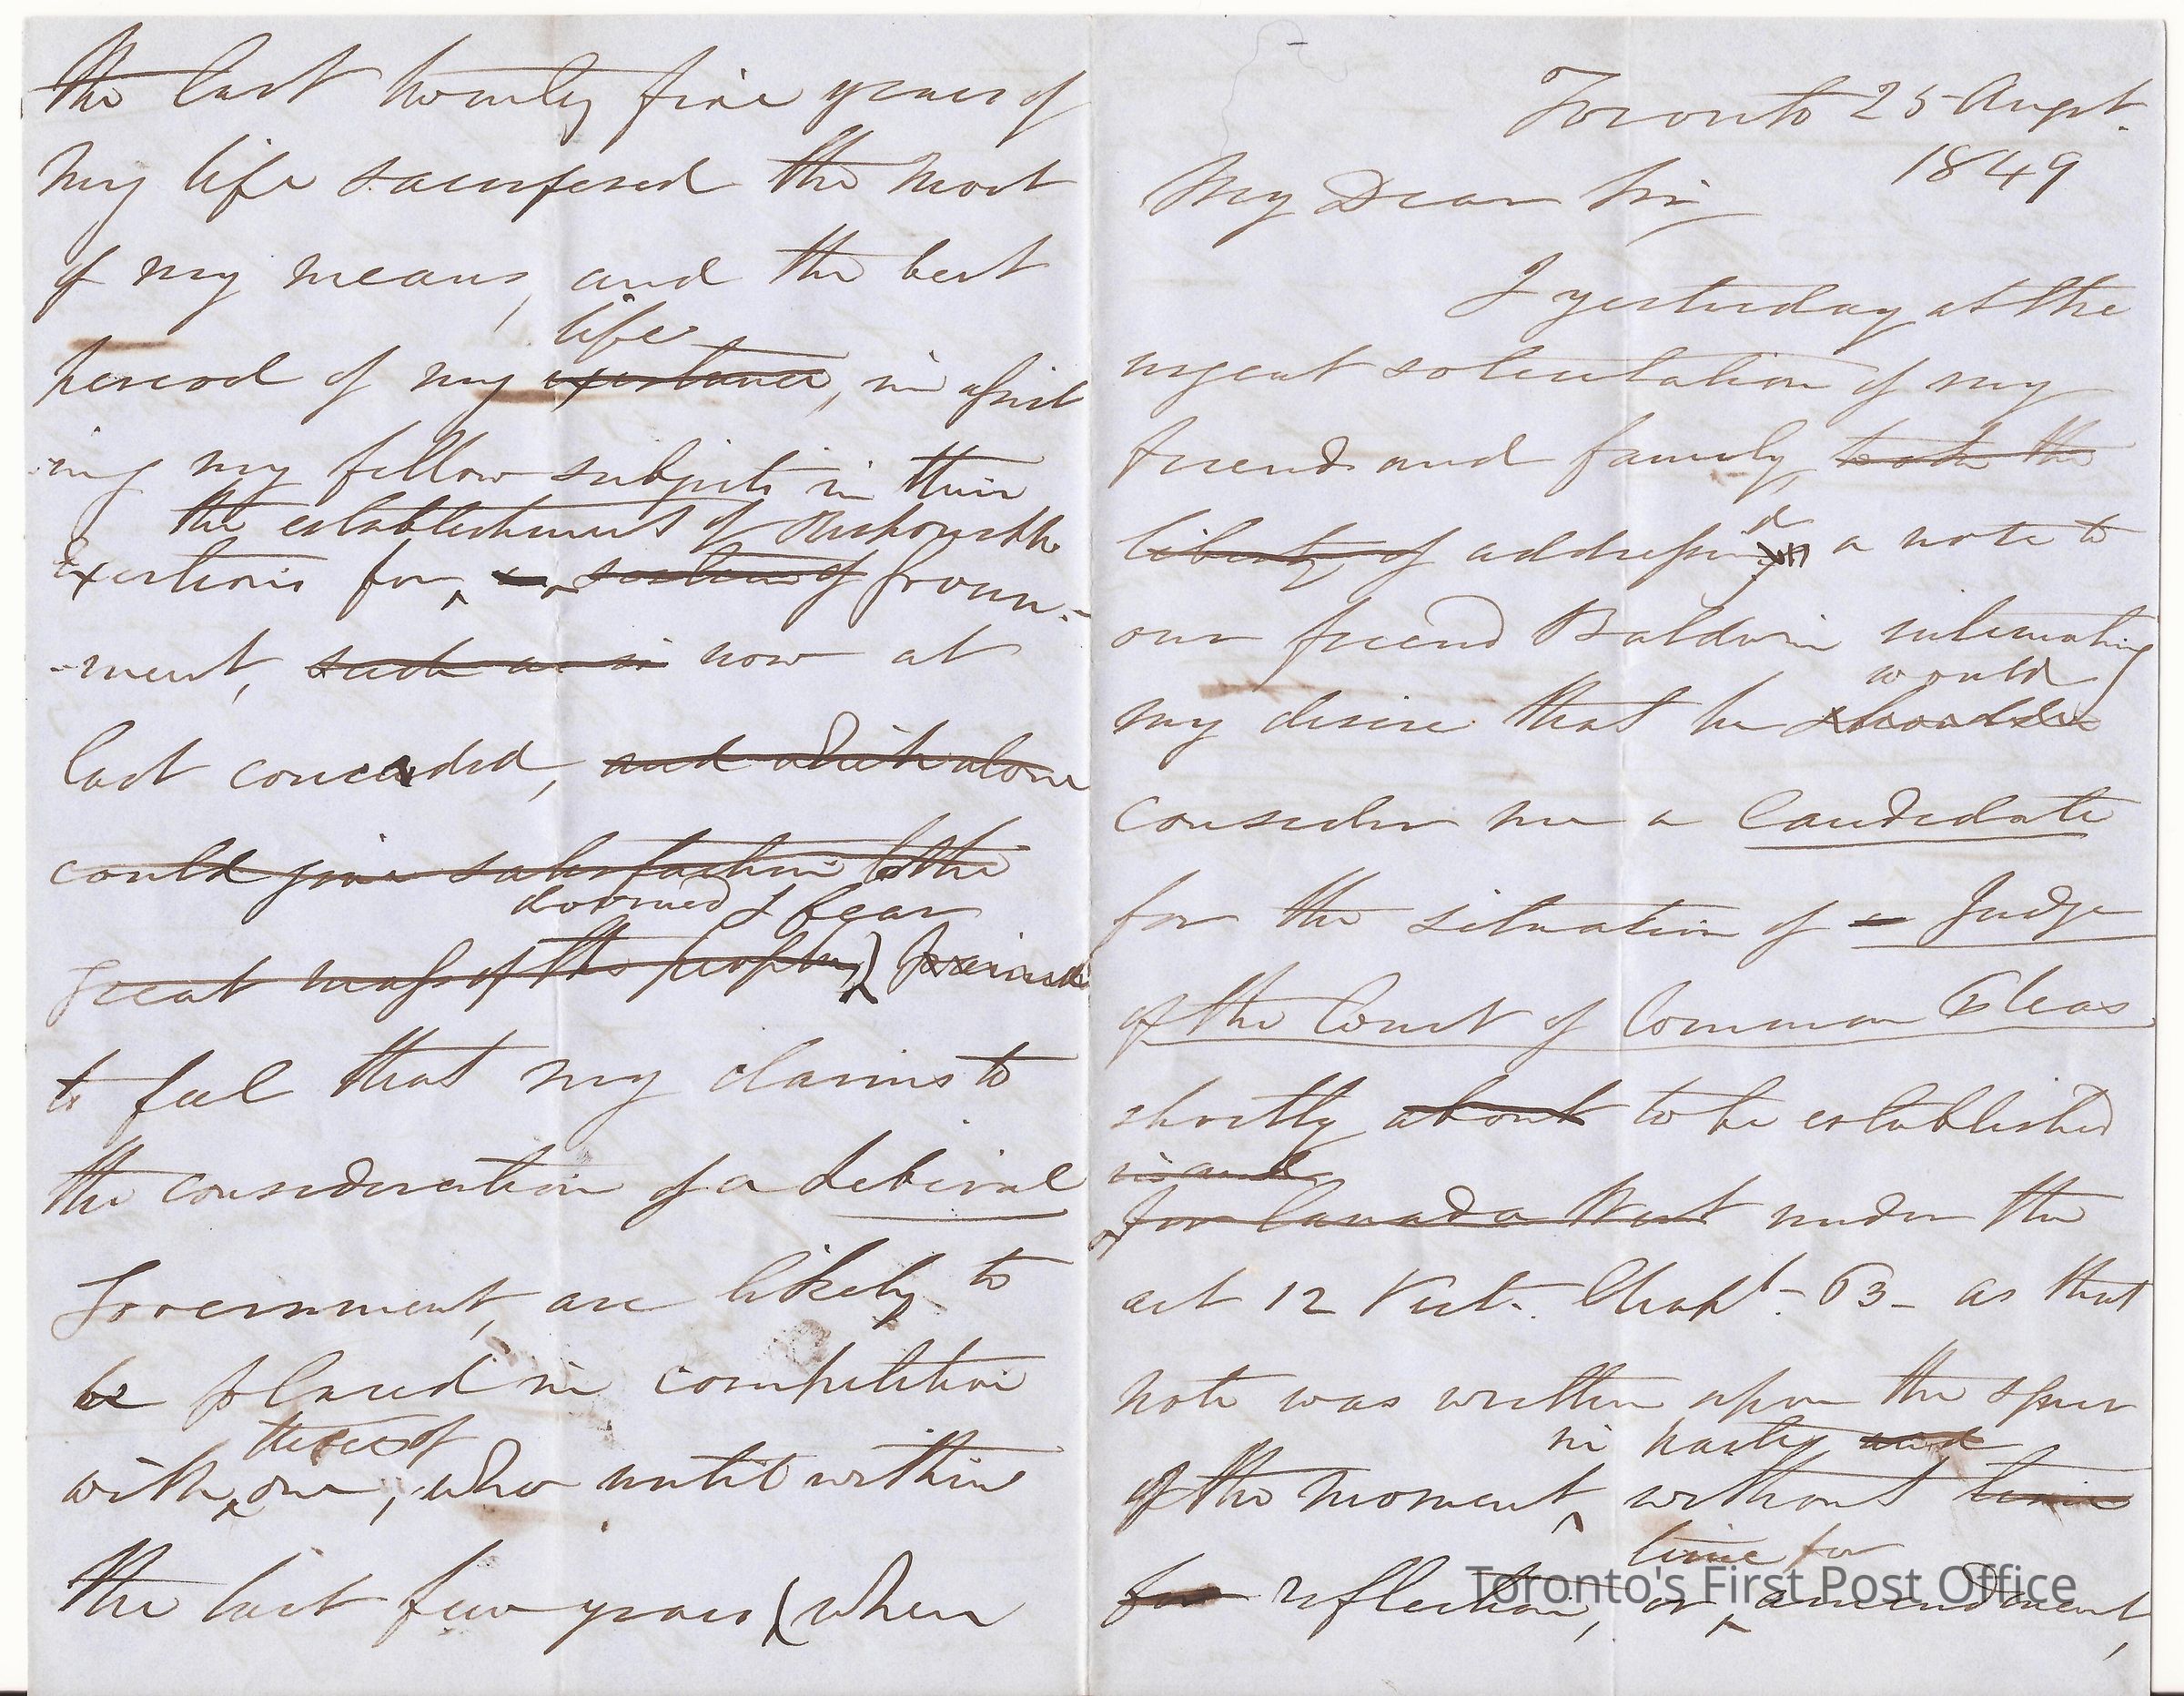 Toronto 25 Augt.
1849
My Dear Sir
I yesterday at the
urgent solicitation of my
friends and family, took the
liberty of addressed a note to
our friend Baldwin intimating
would
my desire that he should
consider me a Candidate
for the situation of a Judge
of the Court of Common Pleas
shortly about to be established
in and
for Canada West under the
act 12 Vict. Chapt. 63 - as that
note was written upon the spur
in haste, and
of the moment, without time
time for
for reflection, or amendment,
the last twenty five years of
my life sacrificed the most
of my means, and the best
life
period of my existence, in assist
ing my fellow subjects in their
the establishment of Responsible
Exertions for a system of Govern-
-ment, such as is now at
last conceded, and which alone
could give satisfaction to the
doomed I fear
great mass of the people,)
to feel that my claims to
the consideration of a Liberal
Government, are likely to
be placed in competition
those of
with one, who until within
the last few years (when
Toronto's First Post Office